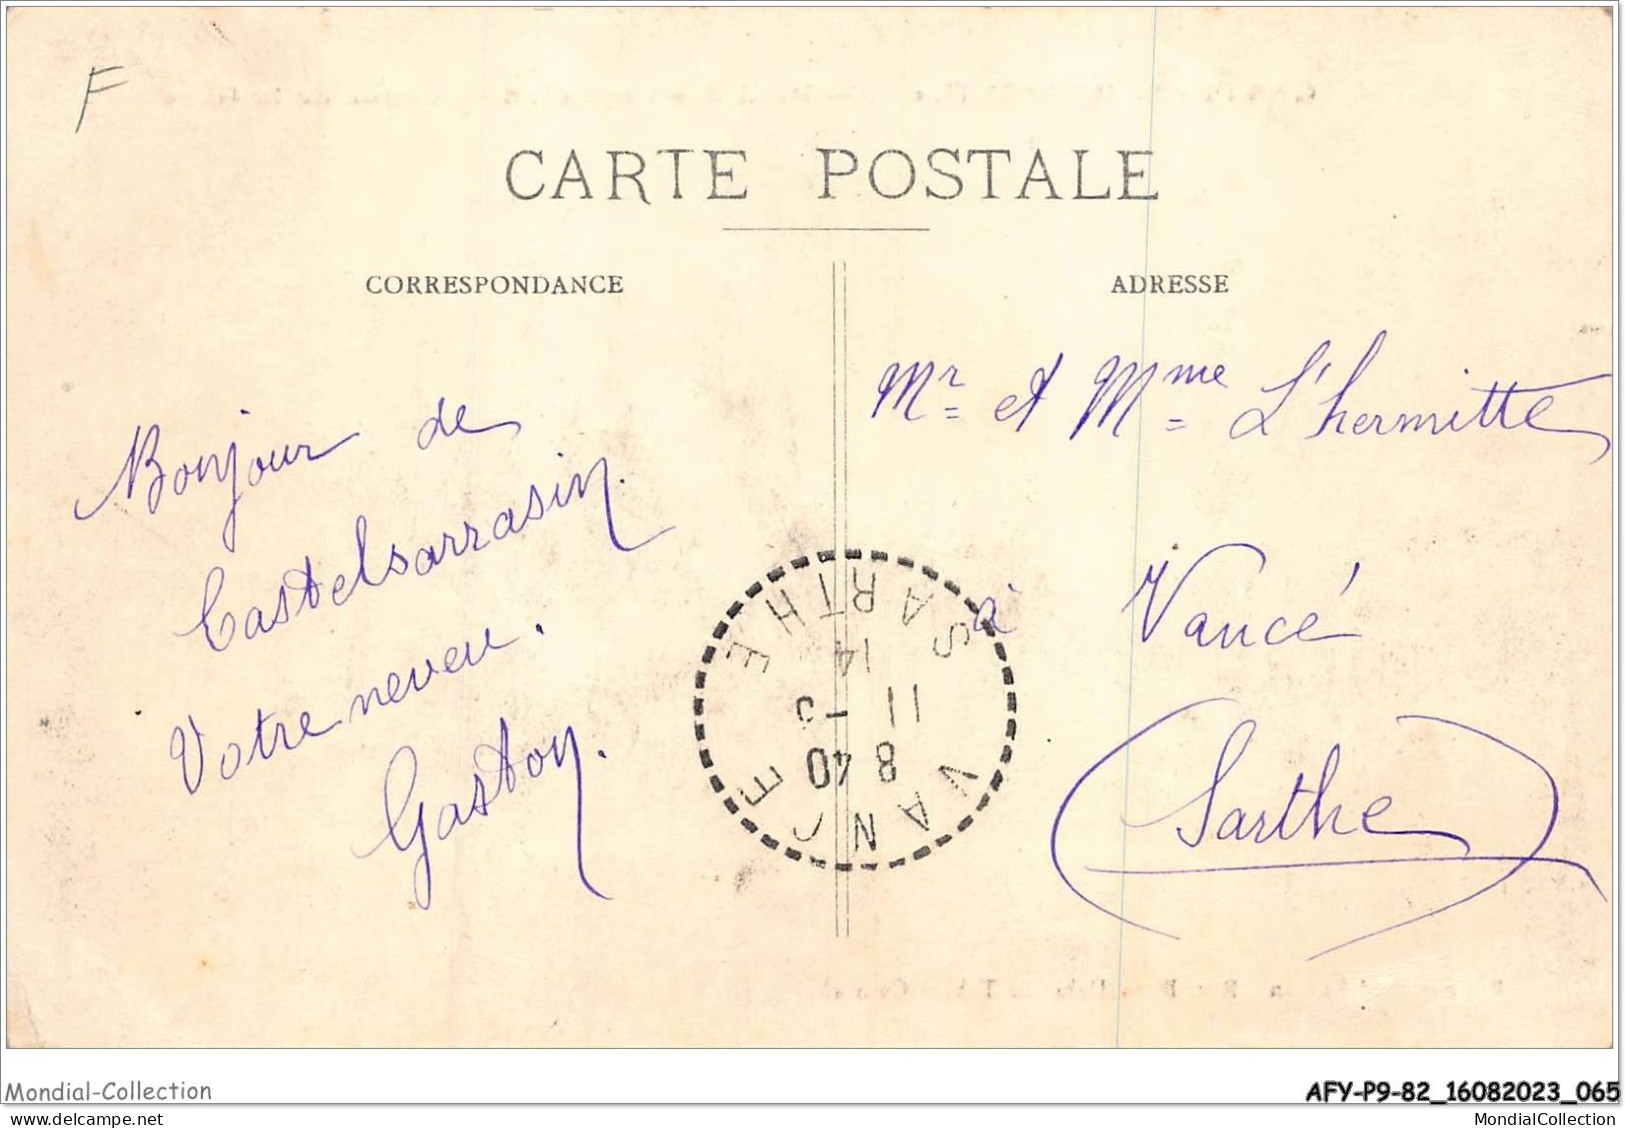 F
CARTE POSTALE
CORRESPONDANCE
ADRESSE
Bonjour de
Castelsarrasin.
Votre neveu.
Gaston.
Mr et Mme L'hermitte
à Vancé
(Sarthe)
VANCE
8 40
11 - 3
14
SARTHE
Mondial-Collection
AFY-P9-82_16082023_065
MondialCollection